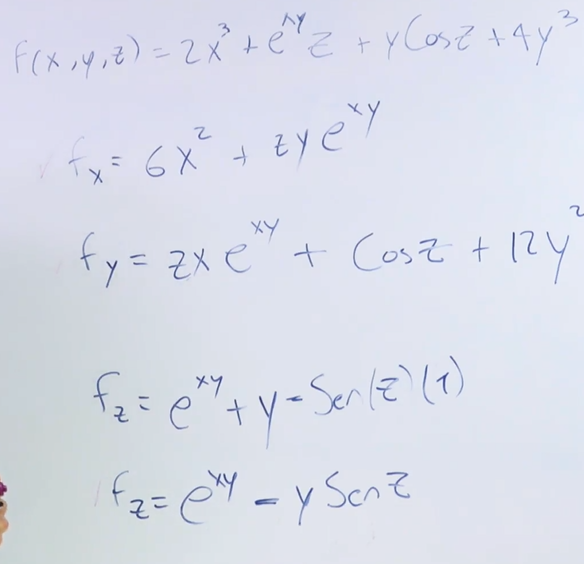 f(x,y,z) = 2x³ + e^{xy}z + yCosz + 4y³
f_x = 6x² + zye^{xy}
f_y = zxe^{xy} + Cosz + 12y²
f_z = e^{xy} + y - Sen(z)(1)
f_z = e^{xy} - ySenz